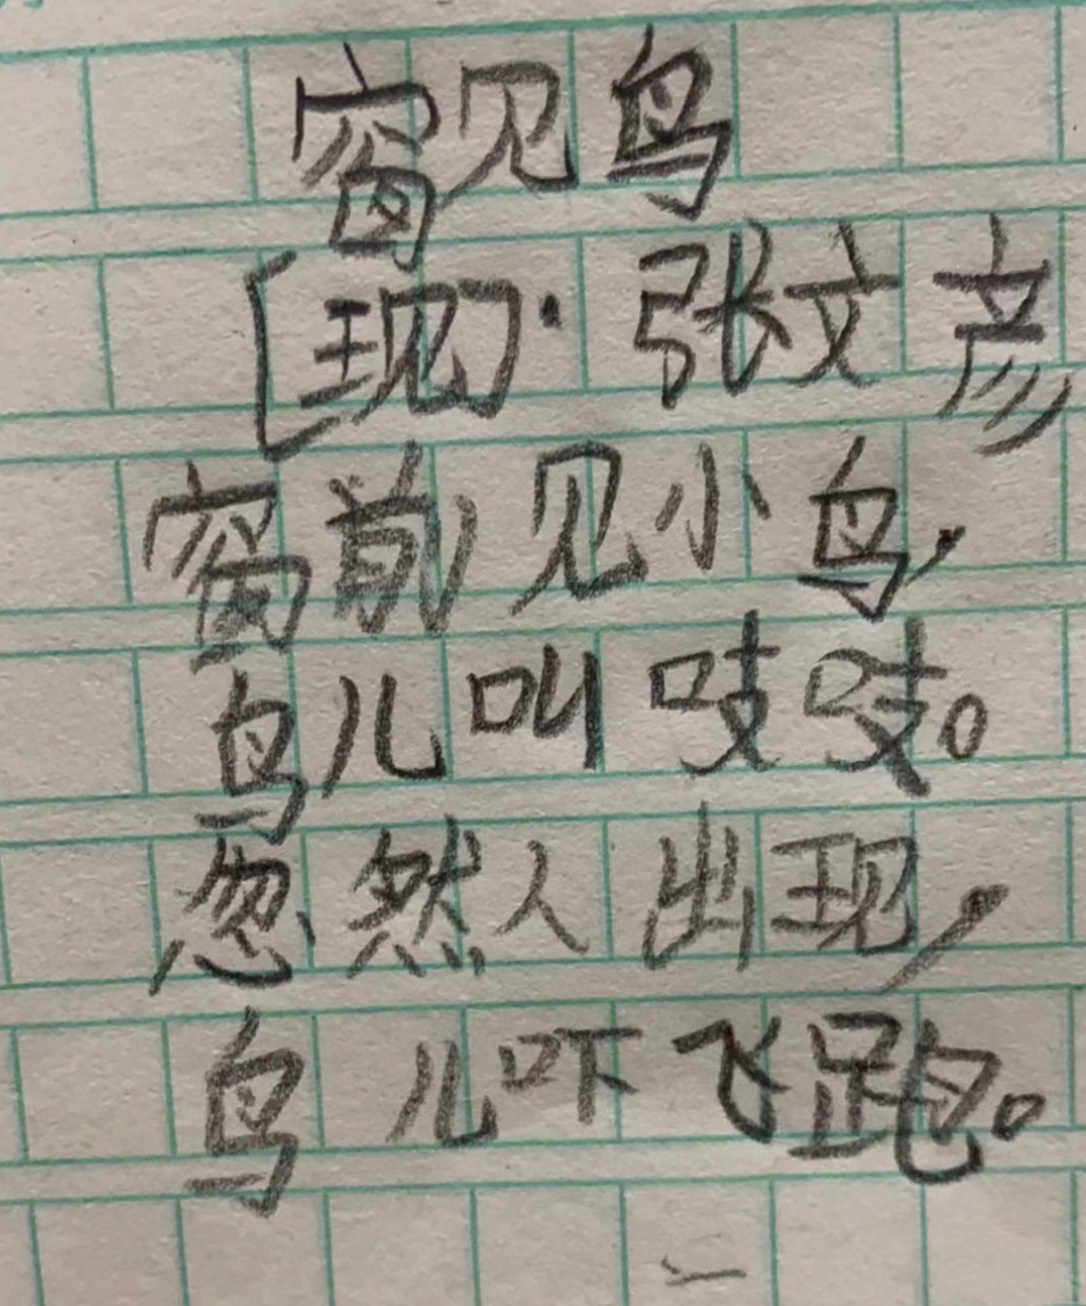 窗见鸟
[现]·张文彦
窗前见小鸟,
鸟儿叫吱吱。
忽然人出现,
鸟儿吓飞跑。